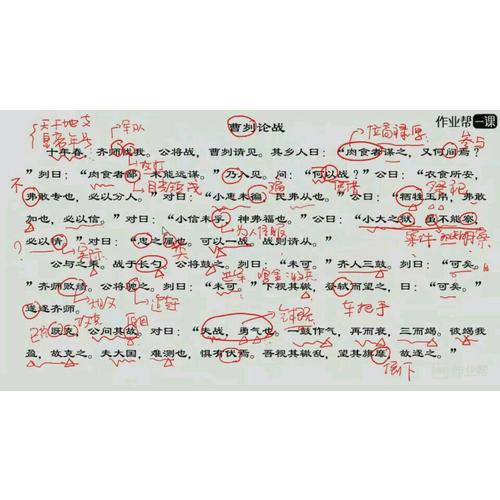 作业帮一课
曹刿论战
天干地支
皇帝年号
军队
位高禄厚
参与
十年春，齐师伐我。公将战，曹刿请见。其乡人曰：“肉食者谋之，又何间焉？
”刿曰：“肉食者鄙，未能远谋。”乃入见。问：“何以战？”公曰：“衣食所安，
弗敢专也，必以分人。”对曰：“小惠未徧，民弗从也。”公曰：“牺牲玉帛，弗敢
加也，必以信。”对曰：“小信未孚，神弗福也。”公曰：“小大之狱，虽不能察，
必以情。”对曰：“忠之属也。可以一战。战则请从。”
公与之乘。战于长勺。公将鼓之。刿曰：“未可。”齐人三鼓。刿曰：“可矣。
”齐师败绩。公将驰之。刿曰：“未可。”下视其辙，登轼而望之，曰：“可矣。”
遂逐齐师。
车把手
既克，公问其故。对曰：“夫战，勇气也。一鼓作气，再而衰，三而竭。彼竭我
盈，故克之。夫大国，难测也，惧有伏焉。吾视其辙乱，望其旗靡，故逐之。”
倒下
作业帮